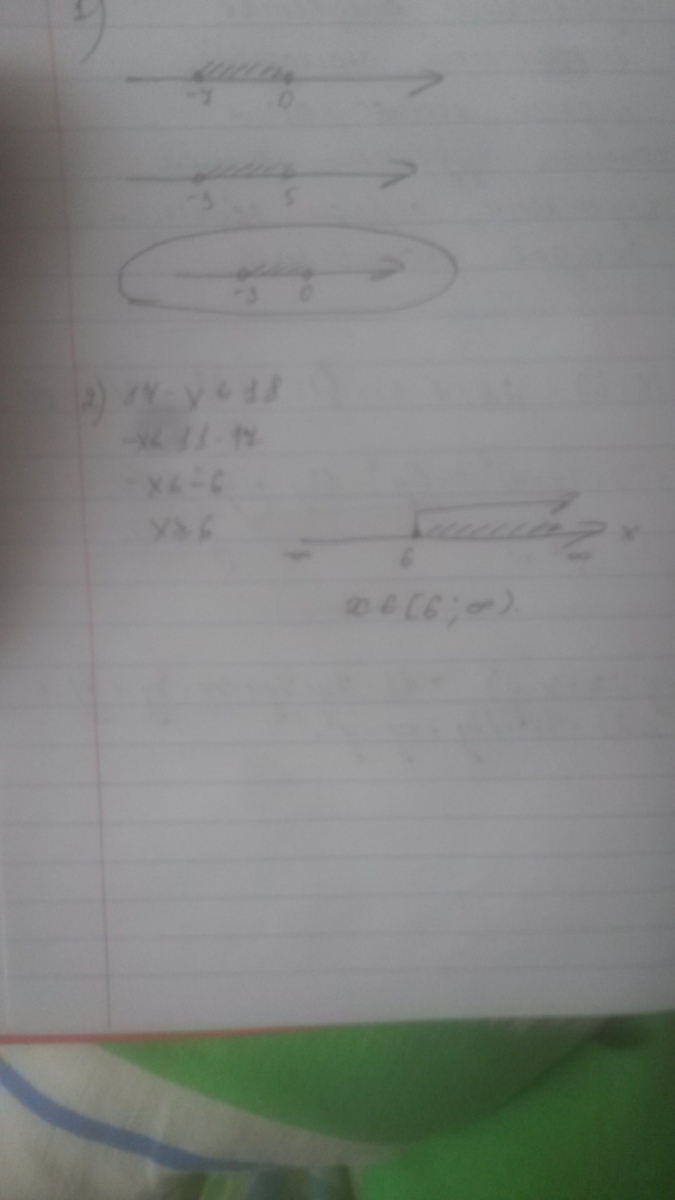 1)
-7 0
-3 5
-3 0
2) 17 - x ≤ 11
-x ≤ 11 - 17
-x ≤ -6
x ≥ 6
-∞ 6 ∞ x
x ∈ [6; ∞)